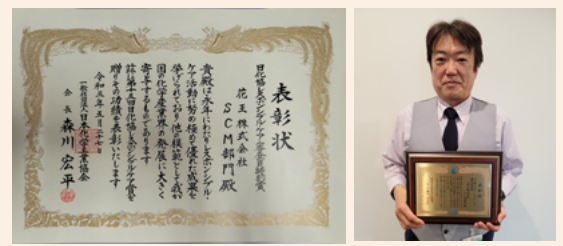 表彰状
日化協レスポンシブル・ケア審査員特別賞
花王株式会社
SCM部門殿
貴殿は永年にわたりレスポンシブル・
ケア活動に努め極めて優れた成果を
挙げられており他の模範として我が
国の化学産業界の発展に大きく
寄与するものであります
茲に第十五回日化協レスポンシブル・ケア賞を
贈りその功績を表彰いたします
令和三年五月二十七日
一般社団法人日本化学工業協会
会長 森川宏平